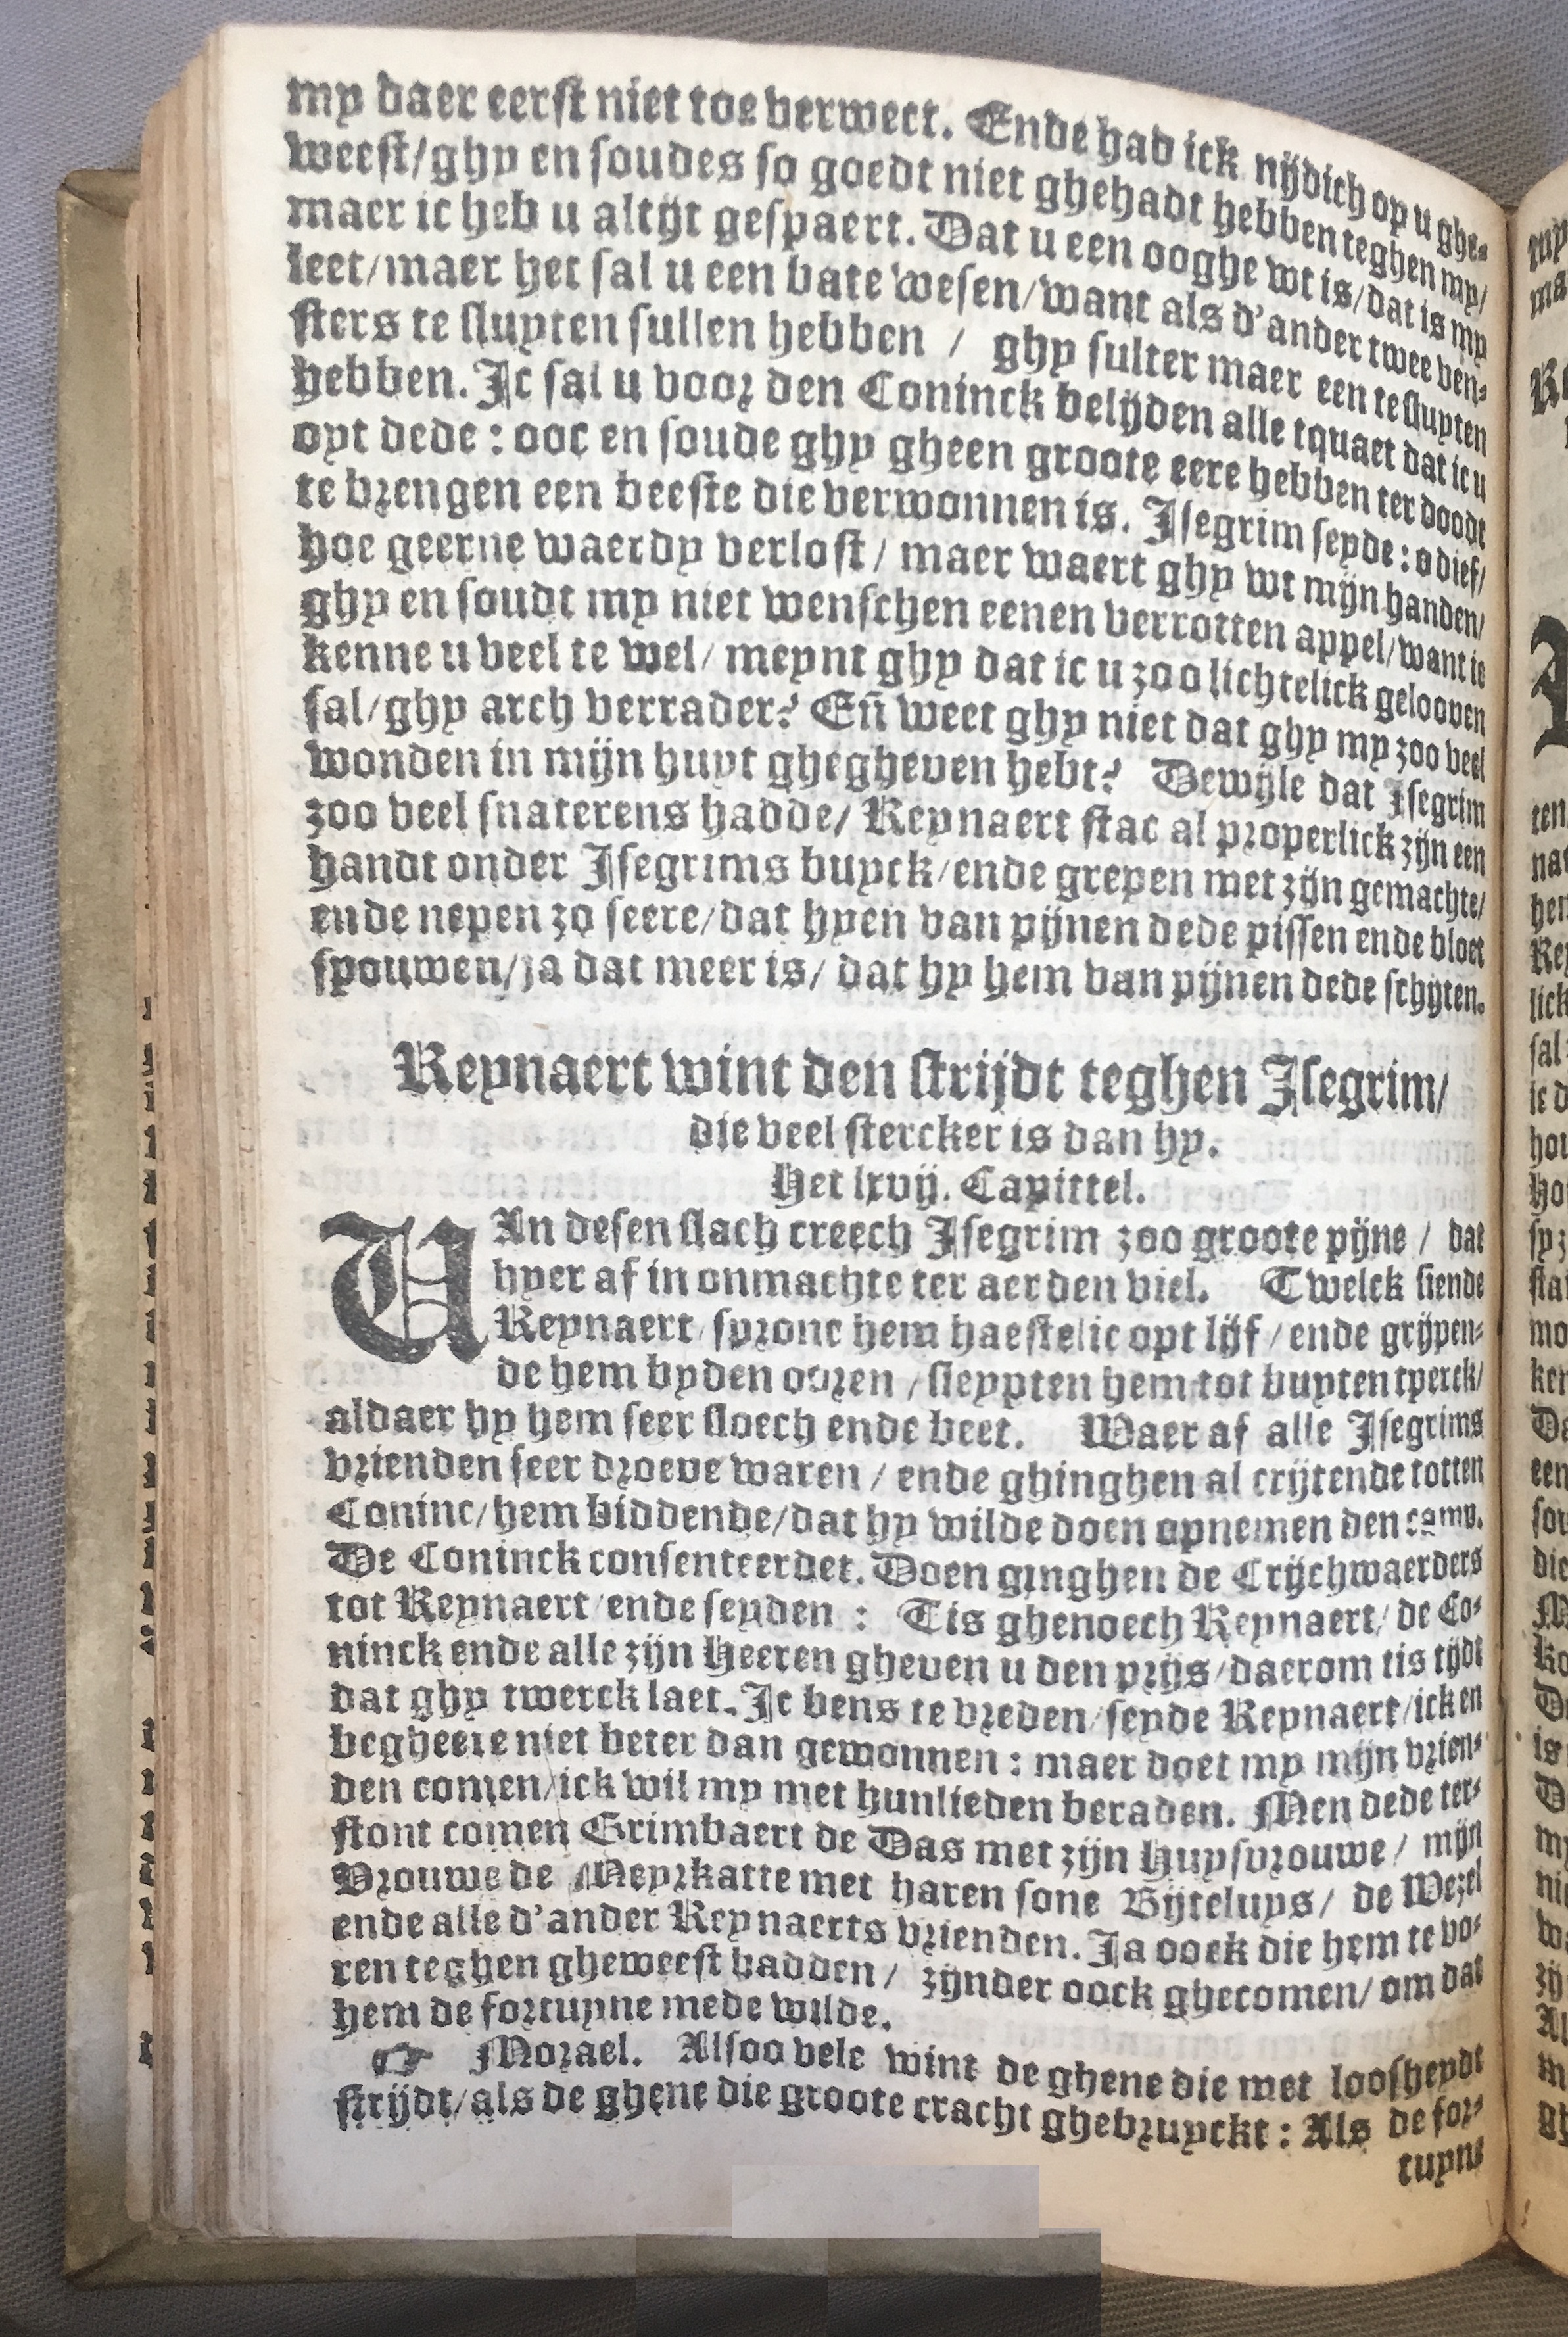 my daer eerst niet toe verwect. Ende had ick nijdich op u ghe-
weest/ghy en soudes so goedt niet ghehadt hebben teghen my/
maer ic heb u altijt gespaert. Dat u een ooghe wt is/dat is my
leet/maer het sal u een bate wesen/want als d'ander twee ven-
sters te sluyten sullen hebben / ghy sulter maer een te sluyten
hebben. Ic sal u voor den Coninck belijden alle tquaet dat ic u
oyt dede : ooc en soude ghy gheen groote eere hebben ter doodt
te brengen een beeste die verwonnen is. Isegrim seyde : o dief/
hoe geerne waerdy verlost/ maer waert ghy wt mijn handen/
ghy en soudt my niet wenschen eenen verrotten appel/want ic
kenne u veel te wel/ meynt ghy dat ic u zoo lichtelick gelooven
sal/ghy arch verrader? Eñ weet ghy niet dat ghy my zoo veel
wonden in mijn huyt ghegheven hebt? Dewijle dat Isegrim
zoo veel snaterens hadde/ Reynaert stac al properlick zijn een
handt onder Isegrims buyck/ende grepen met zijn gemachte/
ende nepen zo seere/dat hyen van pijnen dede pissen ende bloet
spouwen/ja dat meer is/ dat hy hem van pijnen dede schijten.
Reynaert wint den strijdt teghen Isegrim/
die veel stercker is dan hy.
Het lxvij. Capittel.
VAn desen slach creech Isegrim zoo groote pijne / dat
hyer af in onmachte ter aerden viel. Twelck siende
Reynaert/spronc hem haestelic opt lijf/ende grijpen-
de hem by den ooren /sleypten hem tot buyten tperck/
aldaer hy hem seer sloech ende beet. Waer af alle Isegrims
vrienden seer droeve waren / ende ghinghen al crijtende totten
Coninc/hem biddende/dat hy wilde doen opnemen den camp.
De Coninck consenteerdet. Doen ginghen de Crijchwaerders
tot Reynaert/ende seyden : Tis ghenoech Reynaert/ de Co-
ninck ende alle zijn Heeren gheven u den prijs/daerom tis tijdt
dat ghy twerck laet. Ic bens te vreden/seyde Reynaert/ick en
begheere niet beter dan gewonnen : maer doet my mijn vrien-
den comen/ick wil my met hunlieden beraden. Men dede ter-
stont comen Grimbaert de Das met zijn Huysvrouwe/ mijn
Vrouwe de Meyrkatte met haren sone Bijteluys/ de Wezel
ende alle d'ander Reynaerts vrienden. Ja oock die hem te vo-
ren teghen gheweest hadden/ zijnder oock ghecomen/ om dat
hem de fortuyne mede wilde.
☞ Morael. Alsoo vele wint de ghene die met loosheydt
strijdt/als de ghene die groote cracht ghebruyckt : Als de for-
tuyne